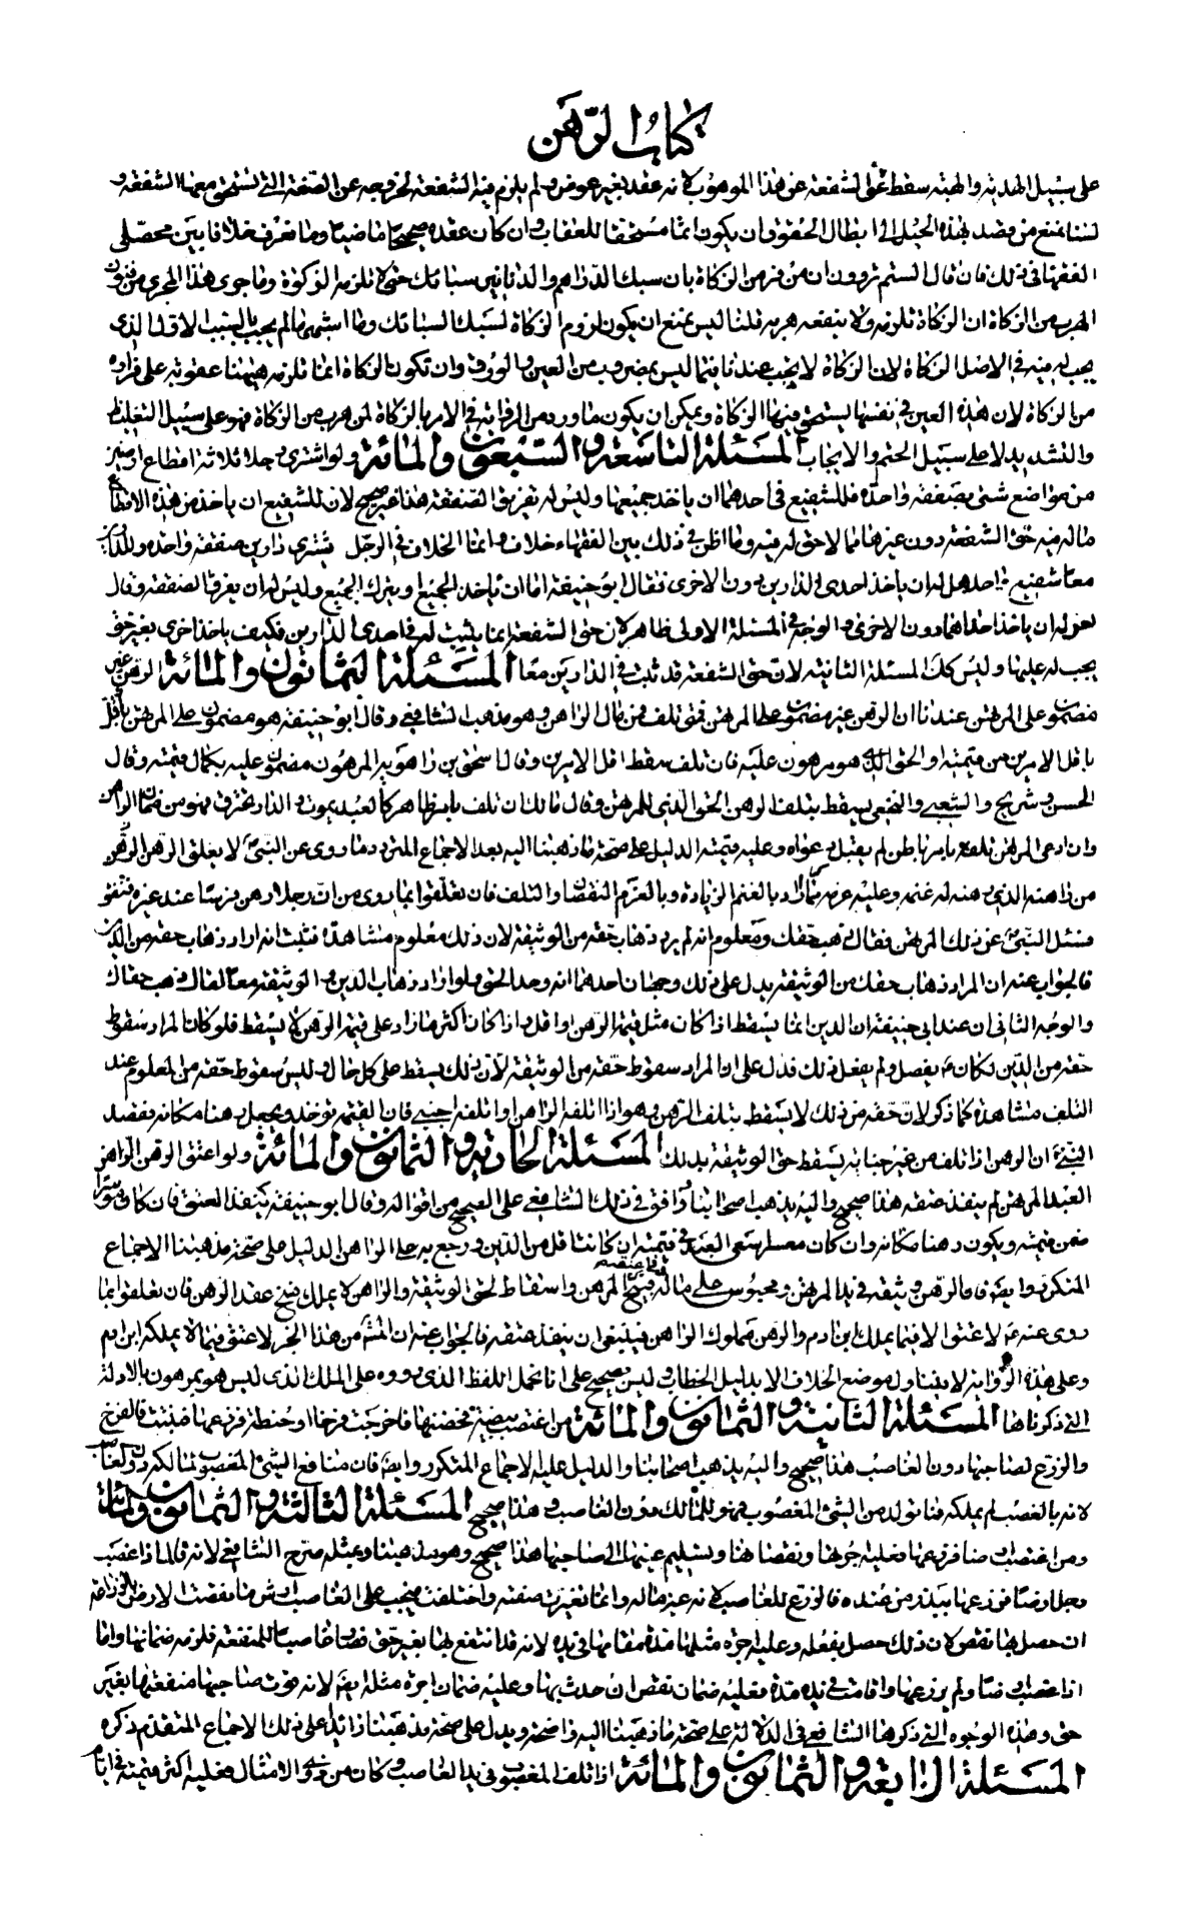 كتاب الرهن
على سبيل الهدية والهبة سقط حق الشفعة عن هذا الموهوب لانه عقد بغير عوض ولم يلزم فيه الشفعة لخروجه عن الصفة التي تستحق معها الشفعة و
لسنا نمنع من قصد بهذه الحيل الى ابطال الحقوق ان يكون اثما مستحقا للعقاب وان كان عقده صحيحا ماضيا وما نعرف خلافا بين محصلي
الفقهاء في ذلك فان قال الستم تروون ان من فر من الزكاة بان سبك الدراهم والدنانير سبائك حتى لا تلزمه الزكوة وما جرى هذا المجرى من فنون
الهرب من الزكاة ان الزكاة تلزمه ولا ينفعه هربه قلنا ليس يمنع ان يكون لزوم الزكاة لسبك السبائك وما اشبهها لم يجب بالسبب الاول الذي
يجب له فيه في الاصل الزكاة لان الزكاة لا يجب عندنا فيما ليس بمضروب من العين والورق وان تكون الزكاة انما تلزمه هيهنا عقوبة على فراره
من الزكاة لان هذه العين في نفسها يستحق فيها الزكاة ويمكن ان يكون ما ورد من الرواية في الامر بالزكاة لمن هرب من الزكاة فهو على سبيل التغليظ
والتشديد لا على سبيل الحتم والايجاب المسئلة التاسعة والسبعون والمائة ولو اشترى رجلا ثلاثة اقطاع ارضين
من مواضع شتى بصفقة واحدة فللشفيع في احدهما ان ياخذ جميعها وليس له تفريق الصفقة هذا غير صحيح لان للشفيع ان ياخذ من هذه الاقطاع
ماله فيه حق الشفعة دون غيرها مما لا حق له فيه وما اظن في ذلك بين الفقهاء خلاف وانما الخلاف في الرجل يشتري دارين صفقة واحدة وللدارين
معا شفيع واحد هل له ان ياخذ احدى الدارين دون الاخرى فقال ابو حنيفة اما ان ياخذ الجميع او يترك الجميع وليس له ان يفرق الصفقة وقال
زفر له ان ياخذ احداهما دون الاخرى والوجه في المسئلة الاولى ظاهر لان حق الشفعة انما يثبت له في احدى الدارين فكيف ياخذ اخرى بغير حق
يجب له عليها وليس كك المسئلة الثانية لان حق الشفعة قد ثبت في الدارين معا المسئلة الثمانون والمائة الرهن غير
مضمون على المرتهن عندنا ان الرهن غير مضمون على المرتهن فمتى تلف فمن مال الراهن وهو مذهب الشافعي وقال ابو حنيفة هو مضمون على المرتهن باقل
باقل الامرين من قيمته او الحق الذي هو مرهون عليه فان تلف سقط اقل الامرين وقال اسحق بن راهويه المرهون مضمون عليه بكمال قيمته وقال
الحسن وشريح والشعبي والنخعي يسقط بتلف الرهن الحق الذي للمرتهن وقال مالك ان تلف بامر ظاهر كالعبد يموت والدار تحترق فهو من ضمان الراهن
وان ادعى المرتهن تلفه بامر باطن لم يقبل دعواه وعليه قيمته الدليل على صحة ما ذهبنا اليه بعد الاجماع المتردد ما روى عن النبي لا يغلق الرهن الرهن
من راهنه الذي رهنه له غنمه وعليه غرمه فاراد بالغنم الزيادة وبالغرم النقصان والتلف فان تعلقوا بما روى من ان رجلا رهن فرسا عند غيره فنفق
فسئل النبي عن ذلك المرتهن فقال ذهب حقك ومعلوم انه لم يرد ذهاب حقه من الوثيقة لان ذلك معلوم مشاهدة فثبت انه اراد ذهاب حقه من الدين
فالجواب عنه ان المراد ذهاب حقك من الوثيقة يدل على ذلك وجهان احدهما انه وحد الحق ولو اراد ذهاب الدين والوثيقة معا لقال ذهب حقاك
والوجه الثاني ان عند ابي حنيفة ان الدين انما يسقط اذا كان مثل قيمة الرهن او اقل واذا كان اكثر ما زاد على قيمة الرهن لا يسقط فلو كان المراد سقوط
حقه من الدين لكان ع يفصل ولم يفعل ذلك فدل على ان المراد سقوط حقه من الوثيقة لان ذلك يسقط على كل حال وليس سقوط حقه من المعلوم عند
التلف مشاهدة كما ذكر لان حقه من ذلك لا يسقط بتلف الرهن وهو اذا اتلفه الراهن او اتلفه اجنبي فان القيمة توخذ ويجعل رهنا مكانه فقصد
النبي ان الرهن اذا تلف من غير جناية يسقط حق الوثيقة بذلك المسئلة الحادية والثمانون والمائة ولو اعتق الراهن
العبد المرهون لم ينفذ عتقه هذا صحيح واليه يذهب اصحابنا وافق في ذلك الشافعي على الصحيح من اقواله وقال ابو حنيفة ينفذ العتق فان كان موسرا
ضمن قيمته ويكون رهنا مكانه وان كان معسرا سعى العبد في قيمته ان كانت اقل من الدين ورجع به على الراهن الدليل على صحة مذهبنا الاجماع
المتكرر وايضا فالرهن وثيقة في يد المرتهن ومحبوس على ماله وفي عتقه فسخ المرتهن واسقاط لحق الوثيقة والراهن لا يملك فسخ عقد الرهن فان تعلقوا بما
روى عنه ع لا عتق الا فيما يملك ابن ادم والرهن مملوك الراهن فينبغي ان ينفذ عتقه فالجواب عنه ان المتن من هذا الخبر لا عتق فيما لا يملكه ابن ادم
وعلى هذه الرواية لا يتناول موضع الخلاف الا بدليل الخطاب وليس بصحيح على انا نحمل اللفظ الذي رووه على الملك الذي ليس هو بمرهون بالادلة
التي ذكرناها المسئلة الثانية والثمانون والمائة من اغتصب بيضة فحضنها فاخرجت فرخا او حنطة فزرعها فنبتت فالفرخ
والزرع لصاحبها دون الغاصب هذا صحيح واليه يذهب اصحابنا والدليل عليه الاجماع المتكرر وايضا فان منافع الشيء المغصوب لمالكه دون الغاصب
لانه بالغصب لم يملكه فما تولد من الشيء المغصوب فهو للمالك دون الغاصب وهذا صحيح المسئلة الثالثة والثمانون والمائة
ومن اغتصب ارضا فزرعها فعليه اجرها ونقصانها وتسليم عينها الى صاحبها هذا صحيح وهو مذهبنا وبمثله صرح الشافعي لانه قال اذا غصب
رجل ارضا فزرعها ببذر من عنده فالزرع للغاصب لانه عين ماله وانما تغيرت صفته واختلفت ويجب على الغاصب ارش ما نقصت الارض بالزراعة
ان حصل بها نقص لان ذلك حصل بفعله وعليه اجرة مثلها مدة مقامها في يده لانه قد انتفع بها بغير حق فصار غاصبا للمنفعة فلزمه ضمانها واما
اذا غصب ارضا ولم يزرعها واقامت في يده مدة فعليه ضمان نقص ان حدث بها وعليه ضمان اجرة مثله ايضا لانه فوت صاحبها منفعتها بغير
حق وهذه الوجوه التي ذكرها الشافعي في الدلالة على صحة ما ذهبنا اليه واضحة ويدل على صحة مذهبنا زائدا على ذلك الاجماع المتقدم ذكره
المسئلة الرابعة والثمانون والمائة اذا تلف المغصوب في يد الغاصب وكان من ذوي الامثال فعليه اكثر قيمته في ايام